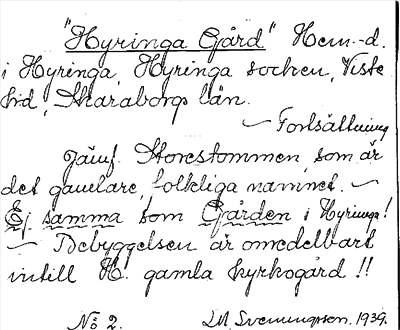 "Hyringa Gård" Hem.-d.
i Hyringa, Hyringa socken, Viste
hd, Skaraborgs län.
— Fortsättning
Jämf. Storestommen, som är
det gamlare, folkliga namnet. —
Ej samma som Gården i Hyringa!
— Bebyggelsen är omedelbart
intill H. gamla kyrkogård!!
No 2. LM. Svenungsson. 1939.